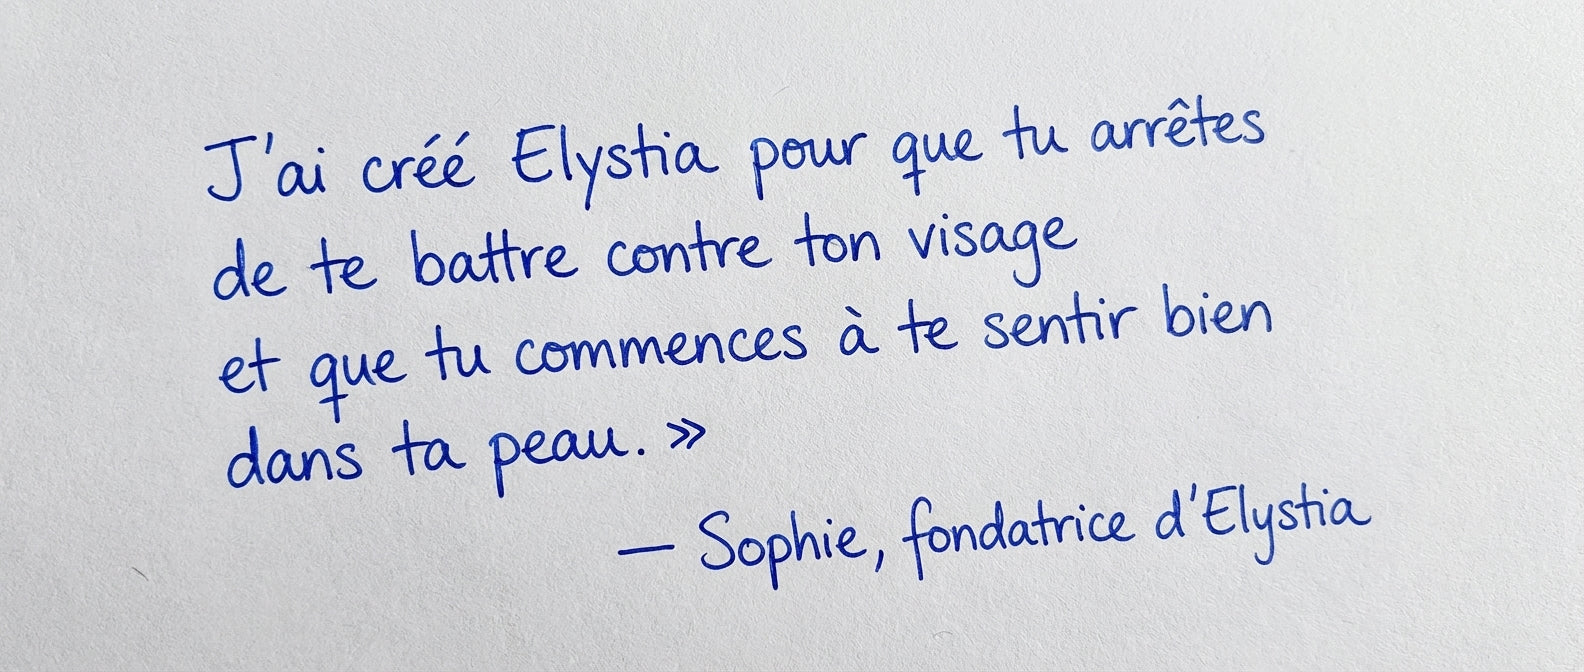 J'ai créé Elystia pour que tu arrêtes
de te battre contre ton visage
et que tu commences à te sentir bien
dans ta peau. »
— Sophie, fondatrice d'Elystia